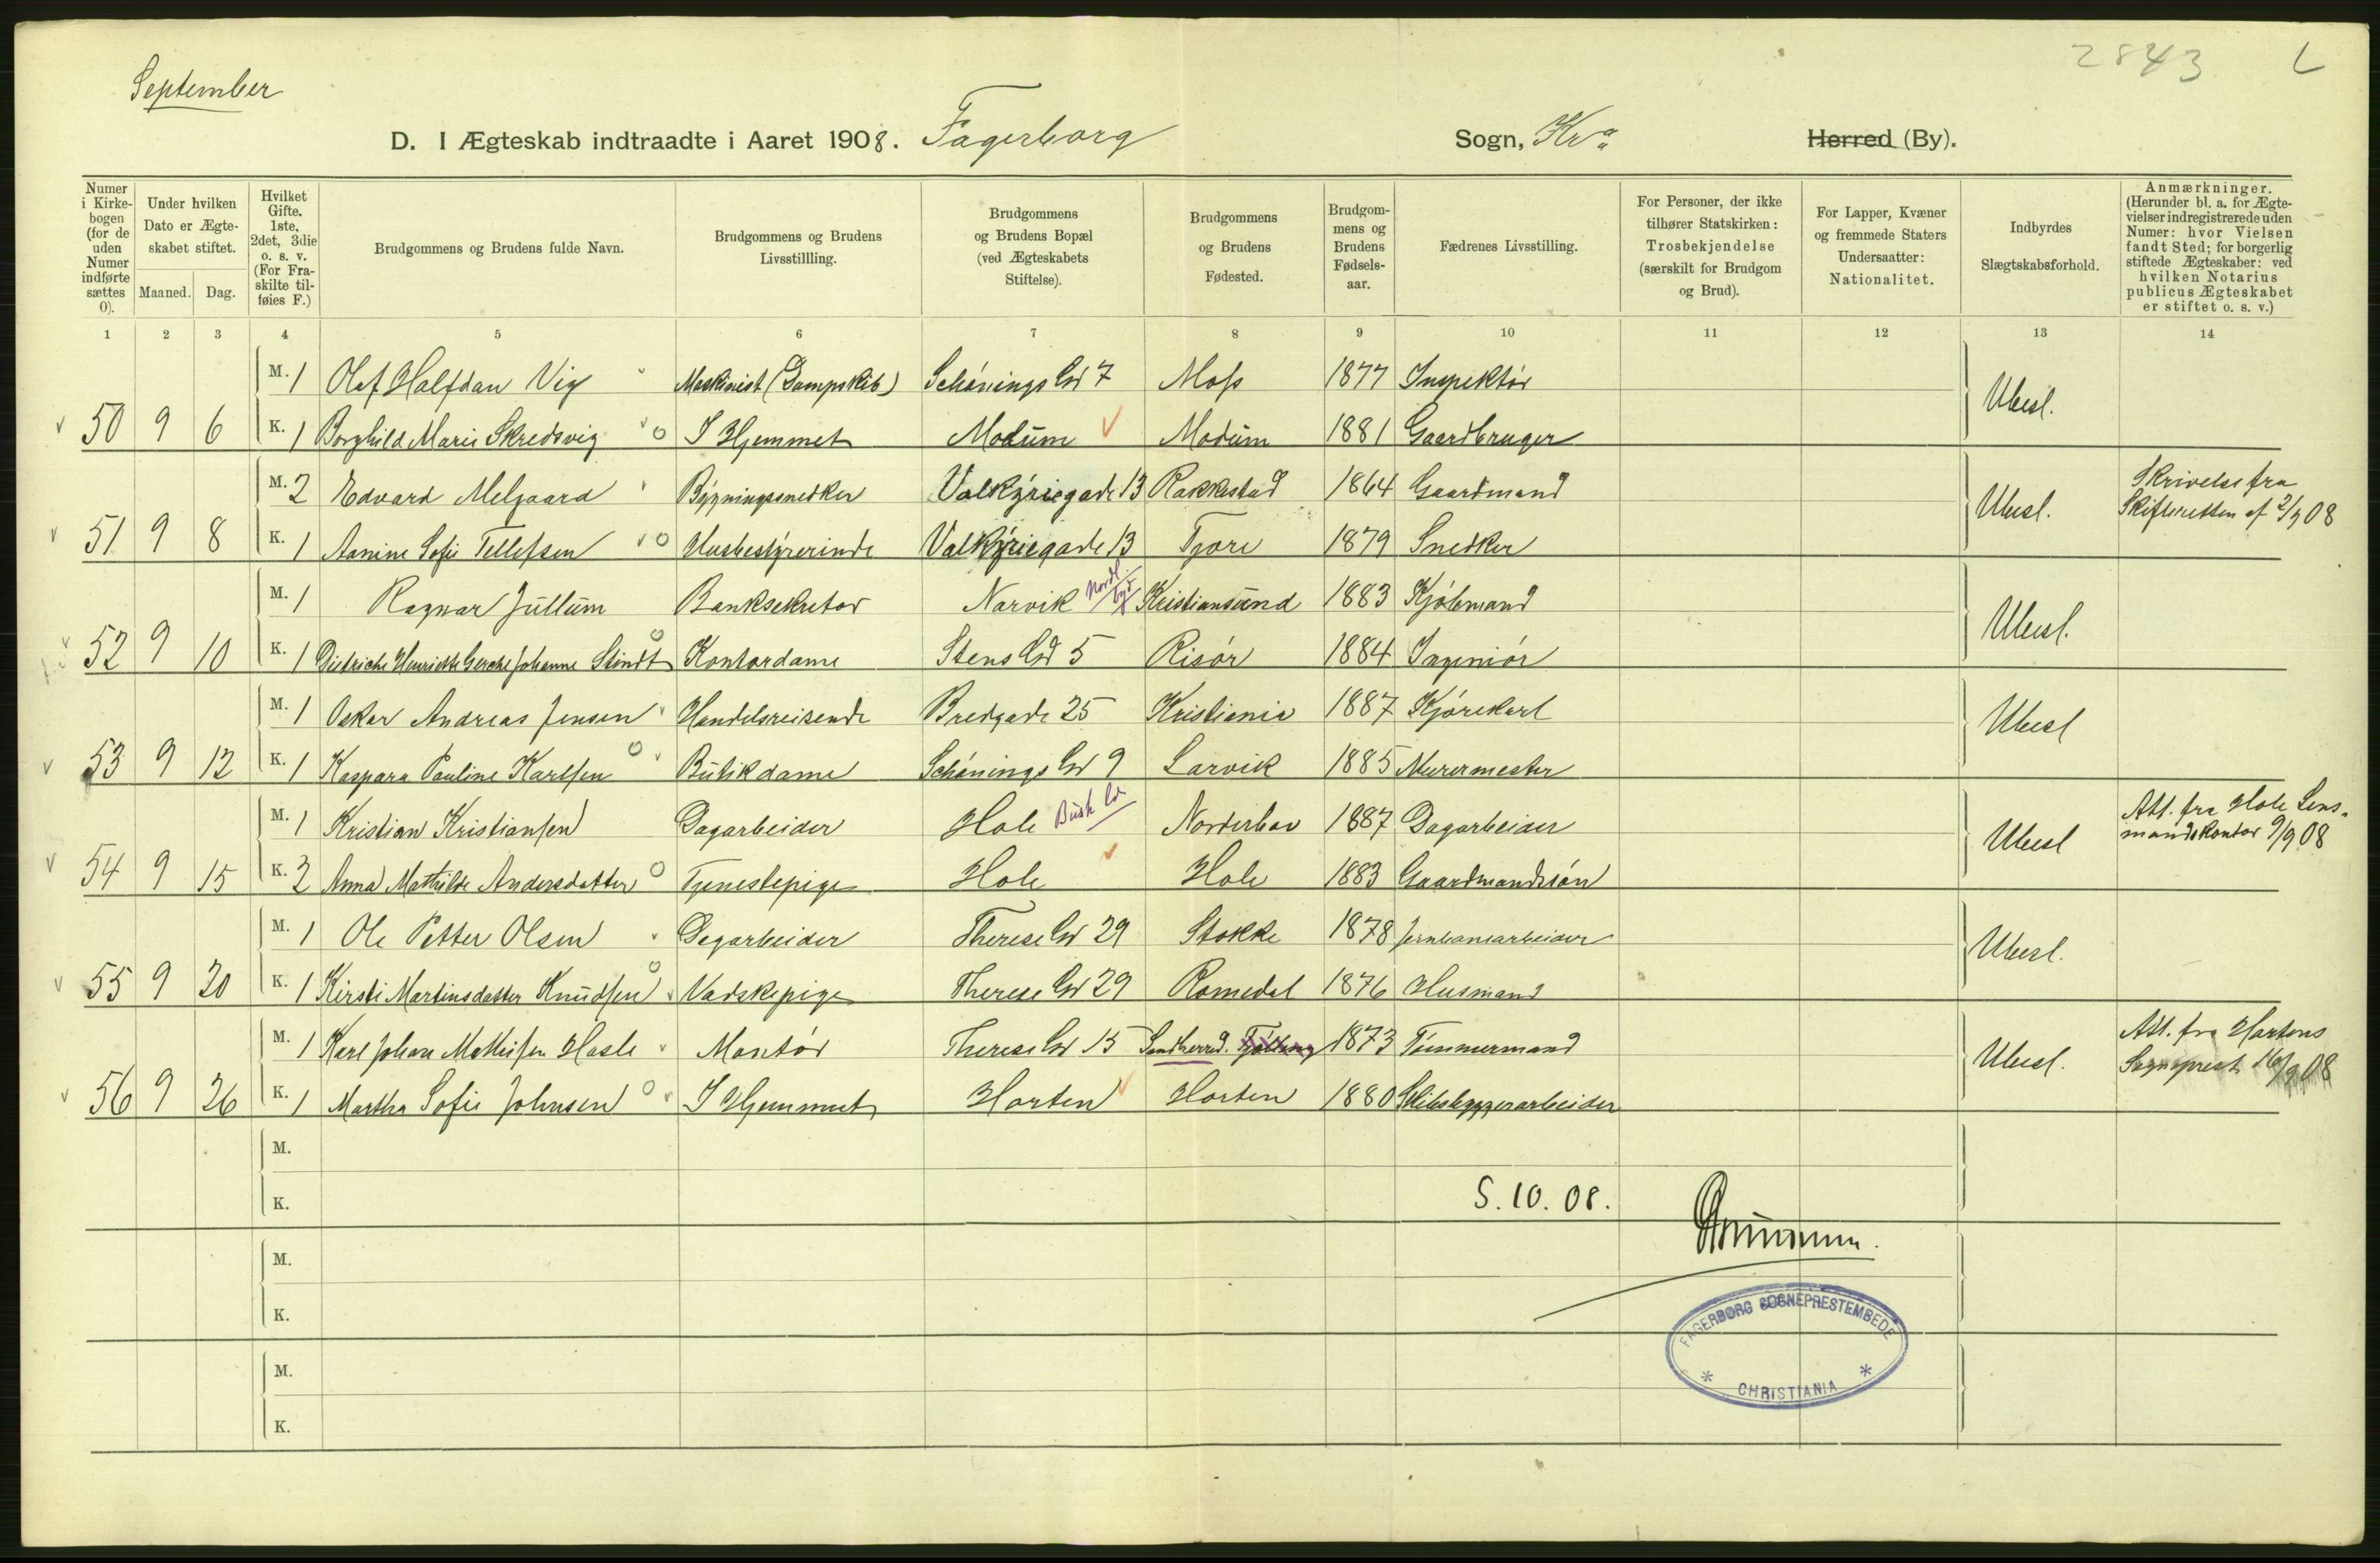 2843 L
September
D. I Ægteskab indtraadte i Aaret 1908. Fagerborg Sogn, Kra Herred (By).
Numer i Kirke-bogen (for de uden Numer indførte sættes 0).
Under hvilken Dato er Ægte-skabet stiftet.
Maaned. Dag.
Hvilket Gifte. 1ste, 2det, 3die o. s. v. (For Fra-skilte til-føies F.)
Brudgommens og Brudens fulde Navn.
Brudgommens og Brudens Livsstillling.
Brudgommens og Brudens Bopæl (ved Ægteskabets Stiftelse).
Brudgommens og Brudens Fødested.
Brudgom-mens og Brudens Fødsels-aar.
Fædrenes Livsstilling.
For Personer, der ikke tilhører Statskirken: Trosbekjendelse (særskilt for Brudgom og Brud).
For Lapper, Kvæner og fremmede Staters Undersaatter: Nationalitet.
Indbyrdes Slægtskabsforhold.
Anmærkninger. (Herunder bl. a. for Ægte-vielser indregistrerede uden Numer: hvor Vielsen fandt Sted; for borgerlig stiftede Ægteskaber: ved hvilken Notarius publicus Ægteskabet er stiftet o. s. v.)
1 2 3 4 5 6 7 8 9 10 11 12 13 14
M. 1 Olaf Halfdan Vig Maskinist (Dampskib) Schönings Gd 7 Moss 1877 Inspektör
50 9 6 K. 1 Borghild Marie Skredsvig I Hjemmet Modum Modum 1881 Gaardbruger Ubesl.
M. 2 Edvard Melgaard Bygningssnedker Valkyriegade 13 Rakkestad 1864 Gaardmand Skrivelse fra
51 9 8 K. 1 Aanine Sofie Tellefsen Husbestyrerinde Valkyriegade 13 Tjøre 1879 Snedker Ubesl. Skifteretten af 2/9 08
M. 1 Ragnar Jullum Banksekretær Narvik Nordl Kristiansund 1883 Kjöbmand
52 9 10 K. 1 Dietriche Henriette Johanne Stindt Kontordame Stens Gd 5 Risör 1884 Ingeniör Ubesl.
M. 1 Oskar Andreas Jensen Handelsreisende Bredgade 25 Kristiania 1887 Kjörekarl
53 9 12 K. 1 Kaspara Pauline Karlsen Butikdame Schönings Gd 9 Larvik 1885 Murermester Ubesl
M. 1 Kristian Kristiansen Dagarbeider Hole Busk Norderhov 1887 Dagarbeider Att. fra Hole Lens-
54 9 15 K. 2 Anna Mathilde Andersdatter Tjenestepige Hole Hole 1883 Gaardmandssön Ubesl mandskontor 9/9 08
M. 1 Ole Petter Olsen Dagarbeider Therese Gd 29 Stokke 1878 Jernbanearbeider
55 9 20 K. 1 Kirsti Martinsdatter Knudsen Vadskepige Therese Gd 29 Romedal 1876 Husmand Ubesl.
M. 1 Karl Johan Mathisen Hasle Montör Therese Gd 15 Sandherred. Tjölling 1873 Tømmermand Att. fra Hortens
56 9 26 K. 1 Martha Sofie Johnsen I Hjemmet Horten Horten 1880 Skibsbyggerarbeider Ubesl. Sogneprest 16/9 08
M.
K.
5. 10. 08.
M.
K.
M.
K.
FAGERBORG SOGNEPRESTEMBEDE
* CHRISTIANIA *